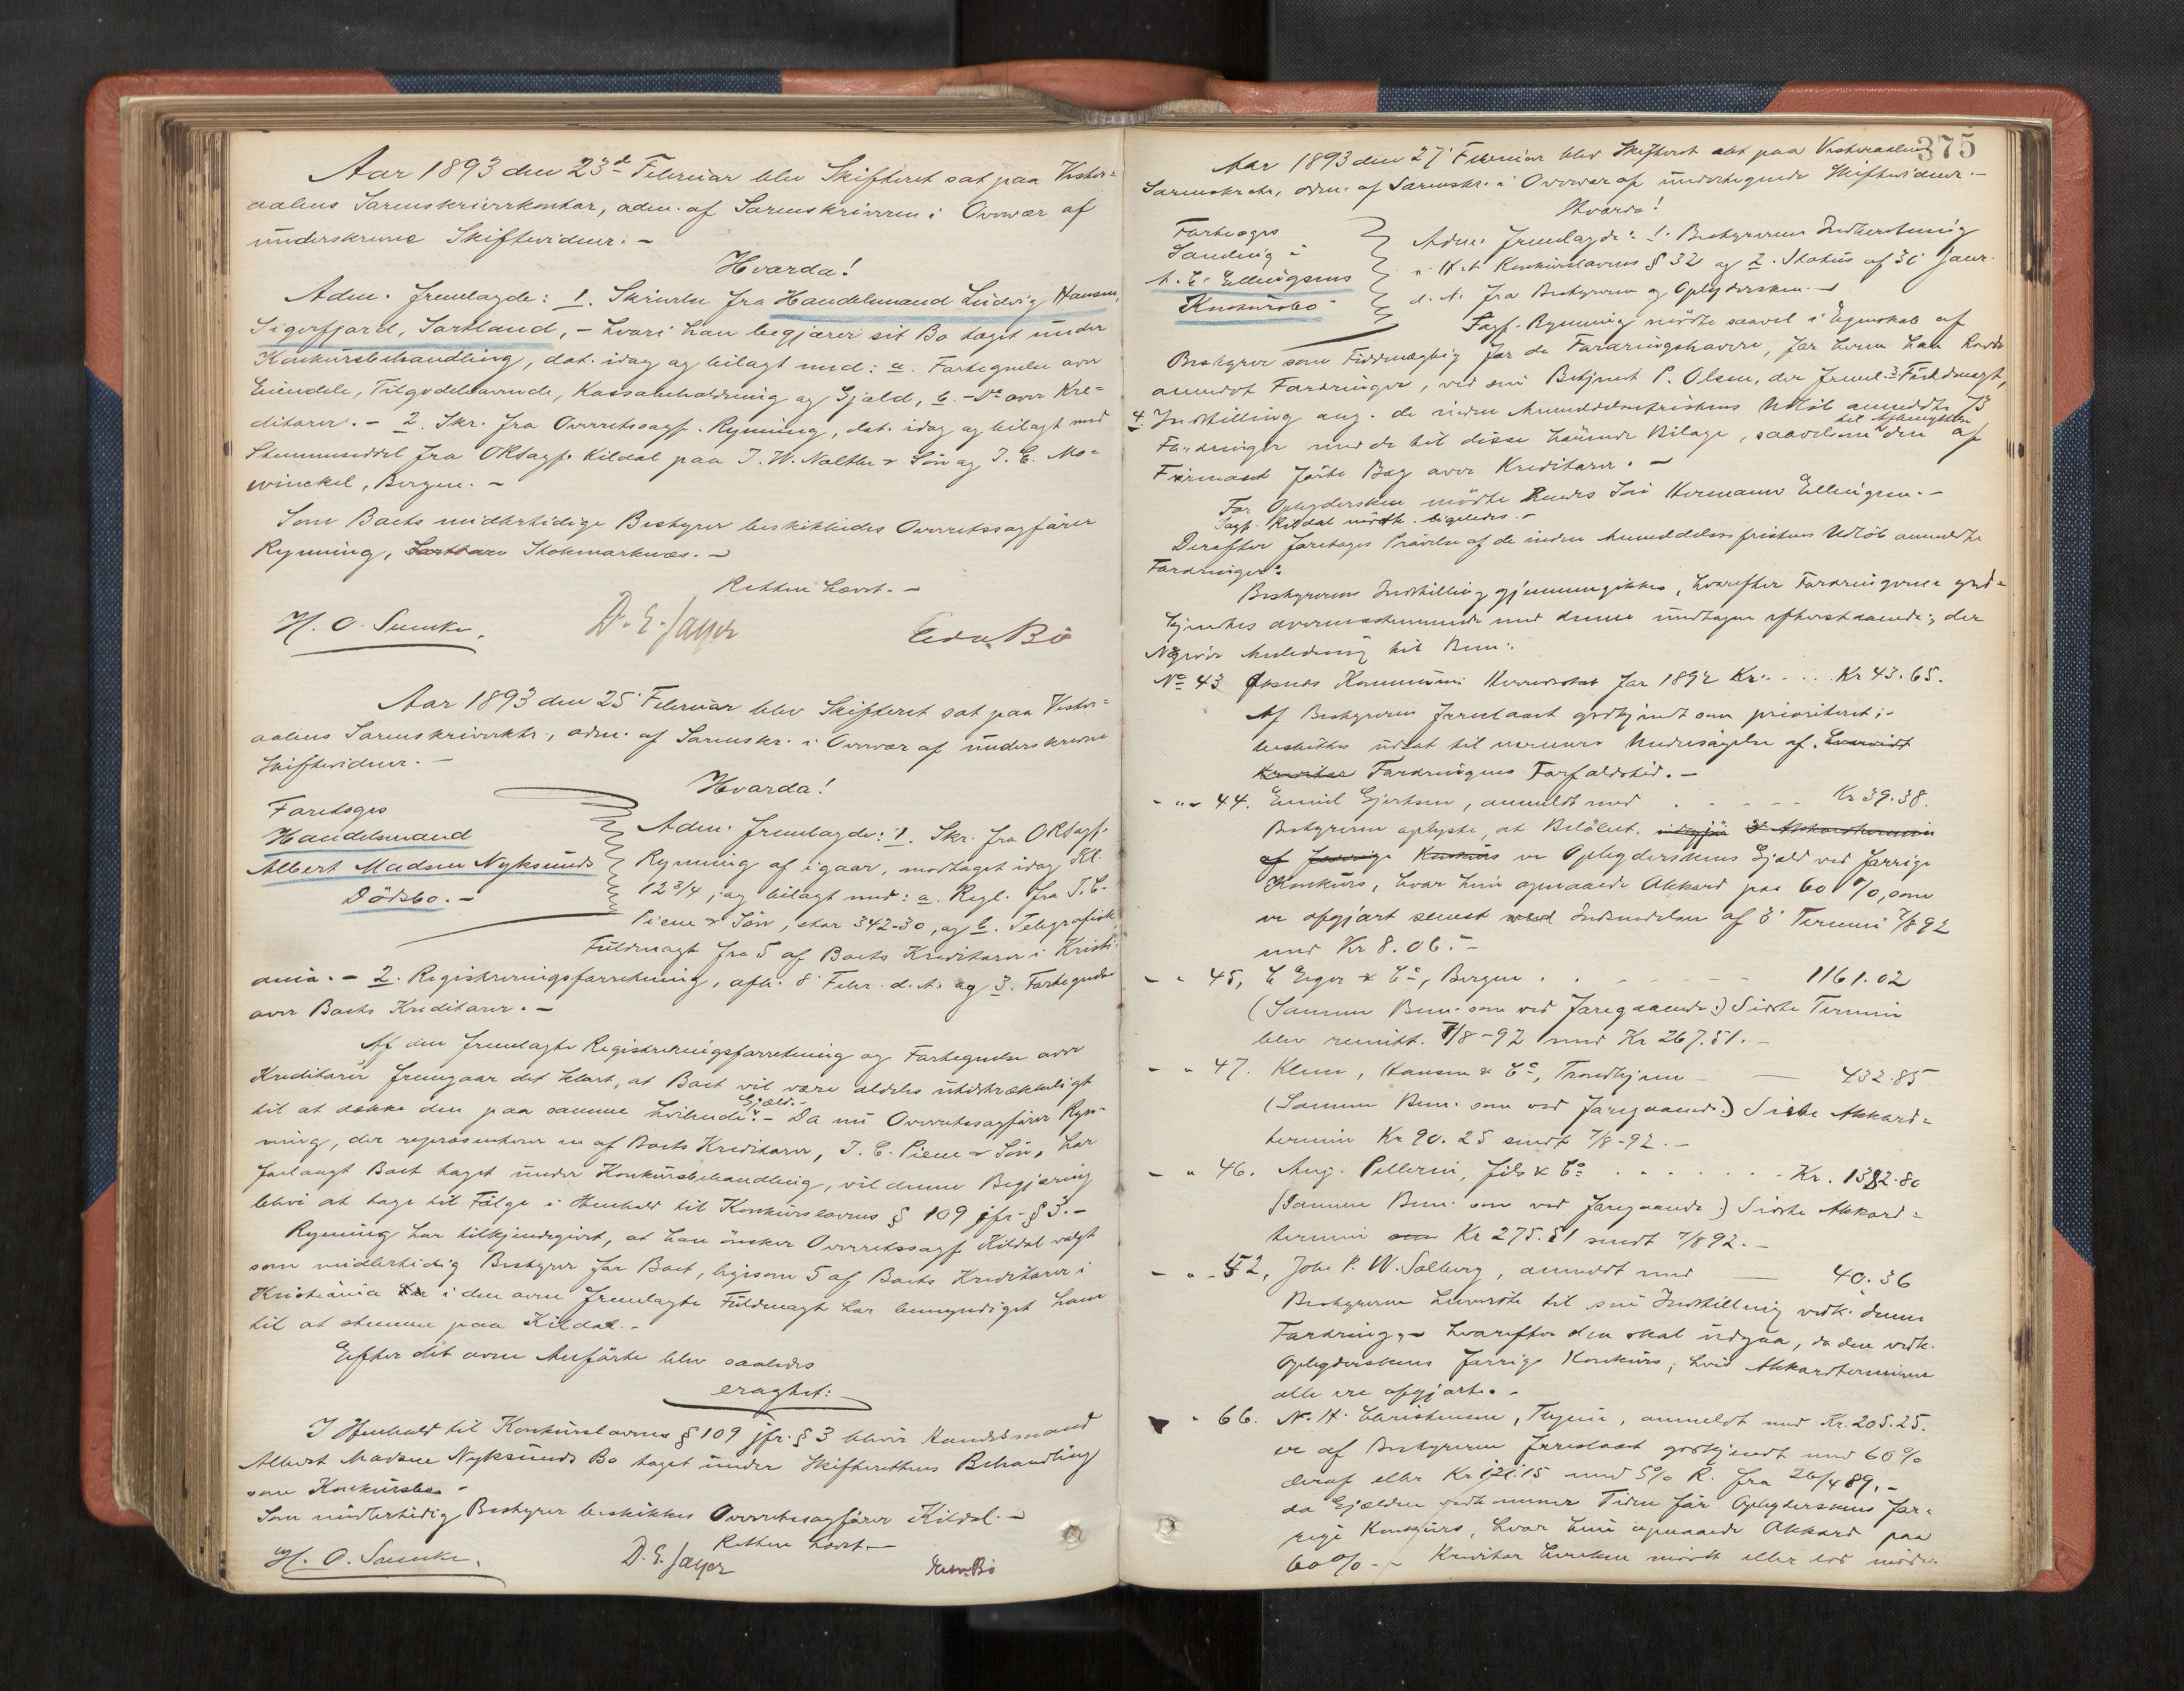 Aar 1893 den 23d Februar blev Skifteret sat paa Vester=
aalens Sorenskriverkontor, adm. af Sorenskriveren i Overvær af
underskrevne Skiftevidner. -
Hvorda!
Adm. fremlagde: 1. Skrivelse fra Handelsmand Ludvig Hansen,
Sigerfjord, Sortland, - hvori han begjærer sit Bo taget under
Konkursbehandling, dat. idag og bilagt med: a. Fortegnelse over
Eiendele, Tilgodehavende, Kassabeholdning og Gjæld, b. - Do over Kre=
ditorer. - 2. Skr. fra Overretssagf. Rynning, dat. idag og bilagt med
Stemmeseddel fra ORsagf. Kildal paa J. W. Nolthe & Søn og J. E. Mo=
winckel, Bergen. -
Som Boets midlertidige Bestyrer beskikkedes Overretssagfører
Rynning, Stokmarknæs. -
Retten hævet. -
H. O. D. E. Jager Edv. Bö
Aar 1893 den 25' Februar blev Skifteret sat paa Vester=
aalens Sorenskriverktr., adm. af Sorenskr. i Overvær af underskrevne
Skiftevidner. -
Hvorda!
Foretoges
Handelsmand
Albert Madsen Nyksunds
Dödsbo. -
Adm. fremlagde: 1. Skr. fra ORsagf.
Rynning af igaar, modtaget idag Kl.
12 3/4, og bilagt med: a. Regl. fra J. C.
Piene & Søn, stor 342-30, og b. Telegrafisk
Fuldmagt fra 5 af Boets Kreditorer i Kristi=
ania. - 2. Registreringsforretning, afh. 8' Febr. d. A. og 3. Fortegnelse
over Boets Kreditorer. -
Af den fremlagte Registreringsforretning og Fortegnelse over
Kreditorer fremgaar det klart, at Boet vil være aldeles utilstrækkeligt
til at dække den paa samme hvilende Gjæld. - Da nu Overretssagfører Ryn=
ning, der repræsenterer en af Boets Kreditorer, J. C. Piene & Søn, har
forlangt Boet taget under Konkursbehandling, vil denne Begjæring
blive at tage til Følge i Henhold til Konkurslovens § 109 jfr. § 3. -
Rynning har tilkjendegivet, at han önsker Overretssagf. Kildal valgt
som midlertidig Bestyrer for Boet, ligesom 5 af Boets Kreditorer i
Kristiania i den oven fremlagte Fuldmagt har bemyndiget ham
til at stemme paa Kildal. -
Efter det oven Anførte blev saaledes
eragtet:
I Henhold til Konkurslovens § 109 jfr. § 3 bliver Handelsmand
Albert Madsen Nyksunds Bo taget under Skifterettens Behandling
som Konkursbo -
Som midlertidig Bestyrer beskikkes Overretssagfører Kildal. -
Retten hævet. -
H. O. D. E. Jager Edv. Bö
375
Aar 1893 den 27' Februar blev Skifteret sat paa Vesteraalens
Sorenskrktr., adm. af Sorenskr. i Overvær af undertegnede Skiftevidner. -
Hvorda!
Foretoges
Samling i
A. E. Ellingsens
Konkursbo -
Adm. fremlagde: 1. Bestyrerens Indberetning
i H. t. Konkurslovens § 32 og 2. Status af 30' Janr.
d. A. fra Bestyreren og Opbydersken. -
Sagf. Rynning mødte saavel i Egenskab af
Bestyrer som Fuldmægtig for de Fordringshavere, for hvem han havde
anmeldt Fordringer, ved sin Betjent P. Olsen, der freml. 3. Fuldmagt,
4. Indstilling ang. de inden Anmeldelsesfristens Udløb anmeldte 73
Fordringer med de til disse hørende Bilage, saavelsom den til Afbenyttelse af
Firmaet førte Bog over Kreditorer. -
For Opbydersken mødte hendes Søn Hermann Ellingsen. -
Sagf. Kildal mødte ligeledes. -
Derefter foretoges Prøvelse af de inden Anmeldelsesfristens Udløb anmeldte
Fordringer:
Bestyrerens Indstilling gjennemgikkes, hvorefter Fordringerne god=
kjendtes overensstemmende med denne undtagen efterstaaende, der
giver Anledning til Bem:
No 43 Øksnes Kommune Herredsskat for 1892 Kr. . . . . Kr 43.65.
Af Bestyreren foreslaaet godkjendt som prioriteret; -
besluttes udsat til nærmere Undersøgelse af
Fordringens Forfaldstid. -
- " - 44. Emil Gjertsen, anmeldt med . - - - - Kr 39.38.
Bestyreren oplyste, at Beløbet
er Opbyderskens Gjæld ved forrige
Konkurs, hvor hun opnaaede Akkord paa 60 %, som
er opgjort senest ved Indsendelse af Termin 7/8 92
med Kr 8.06. -
- " 45, C Eger & Co, Bergen . . - - - - 1161.02
(Samme Bem. som ved foregaaende.) Sidste Termin
blev remitt. 7/8-92 med Kr 267.51. -
- " 47. Klem, Hansen & Co, Trondhjem - — 432.85
(Samme Bem. som ved foregaaende.) Sidste Akkord=
termin Kr 90.25 sendt 7/8-92. -
- " 46. Aug. Pellerin, fils & Co . - . . . . Kr. 1382.80
(Samme Bem. som ved foregaaende.) Sidste Akkord=
termin Kr 275.51 sendt 7/8 92. -
- " - 52, Joh. P. W. Solberg, anmeldt med — 40.36
Bestyreren henviste til sin Indstilling vedk. denne
Fordring, - hvorefter den skal udgaa, da den vedk.
Opbyderskens forrige Konkurs, hvis Akkordterminer
alle ere opgjorte. -
" 66. N. H. Christensen, anmeldt med Kr. 205.25.
er af Bestyreren foreslaaet godkjendt med 60%
deraf eller Kr 121.15 med 5% R. fra 26/4 89, -
da Gjælden vedkommer Tiden før Opbyderskens for=
rige Konkurs, hvor hun opnaaede Akkord paa
60%. - Kreditor hverken mødt eller lod møde.